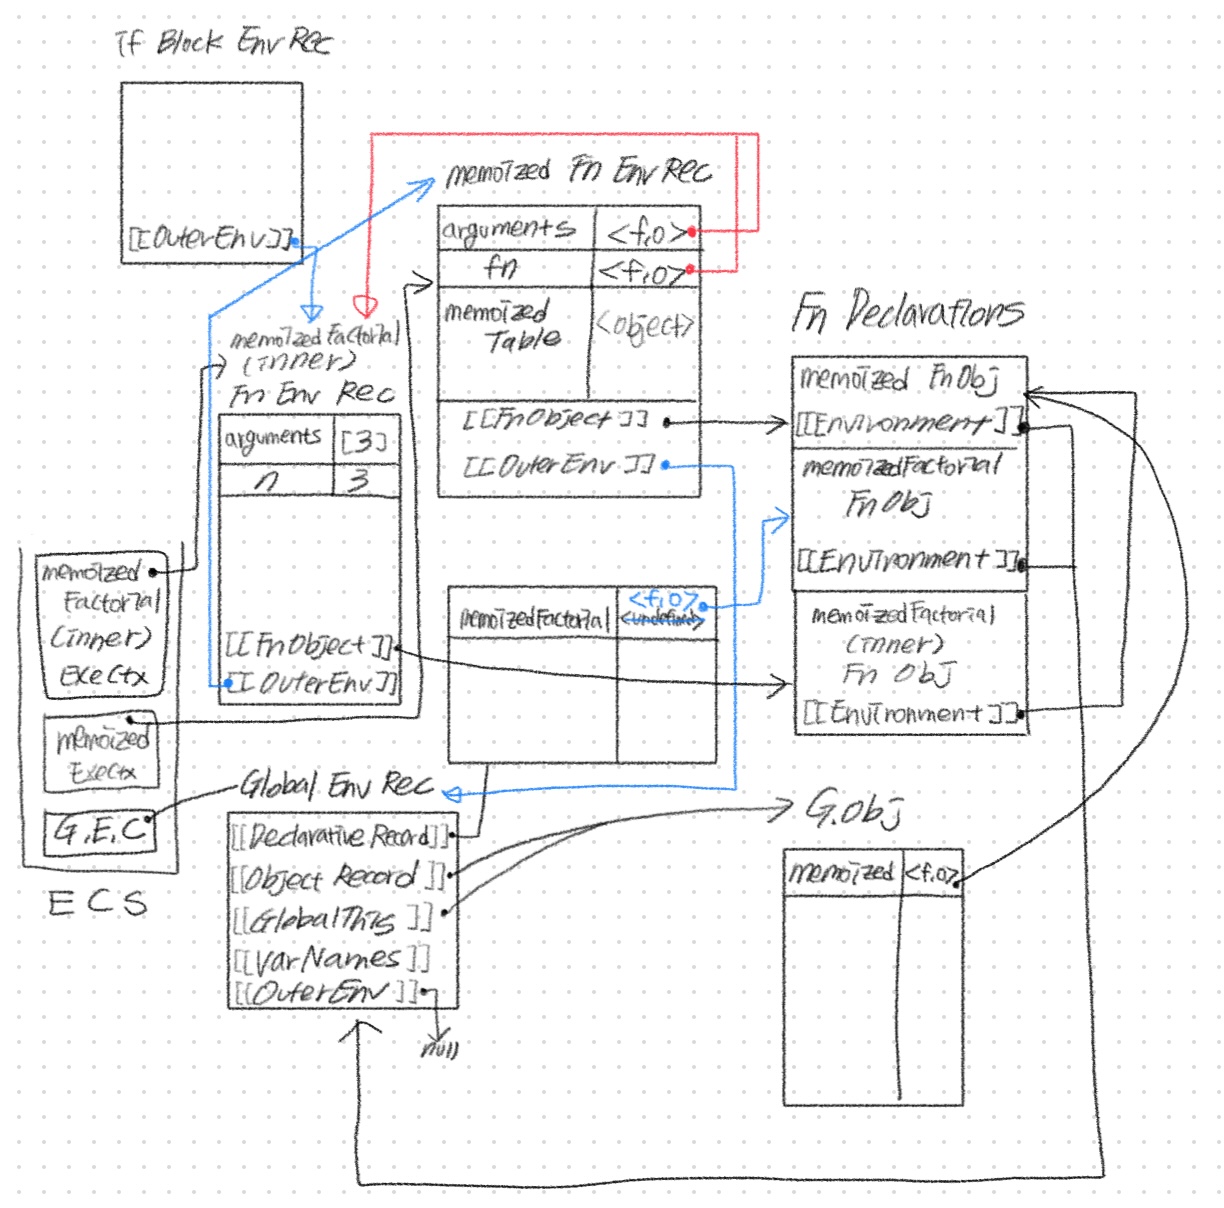 if Block Env Rec
[[OuterEnv]]
memoized Fn Env Rec
arguments <f,o>
fn <f,o>
memoized
Table
<object>
[[FnObject]]
[[OuterEnv]]
memoizedFactorial
(inner)
Fn Env Rec
arguments [3]
n 3
[[FnObject]]
[[OuterEnv]]
Fn Declarations
memoized FnObj
[[Environment]]
memoizedFactorial
FnObj
[[Environment]]
memoizedFactorial
(inner)
Fn Obj
[[Environment]]
memoized
Factorial
(inner)
ExeCtx
memoized
ExeCtx
G.E.C
ECS
<f,o>
memoizedFactorial <undefined>
Global Env Rec
[[Declarative Record]]
[[Object Record]]
[[GlobalThis]]
[[VarNames]]
[[OuterEnv]]
null
G.Obj
memoized <f,o>